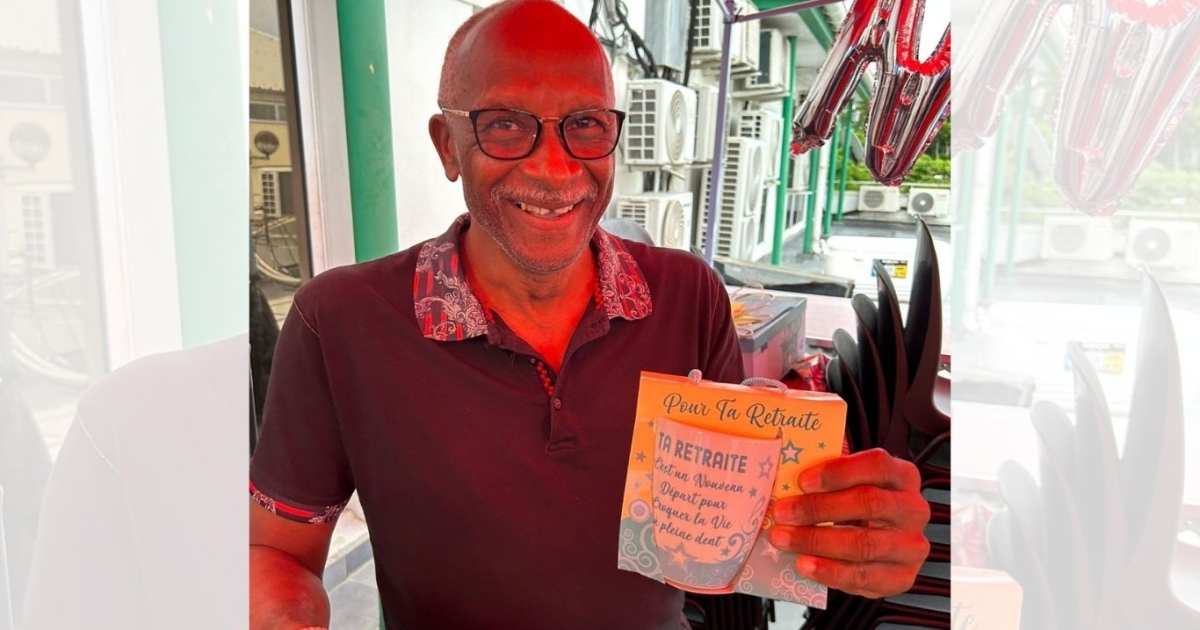 Pour Ta Retraite
TA RETRAITE
C'est un Nouveau
Départ pour
Croquer la Vie
à pleine dent